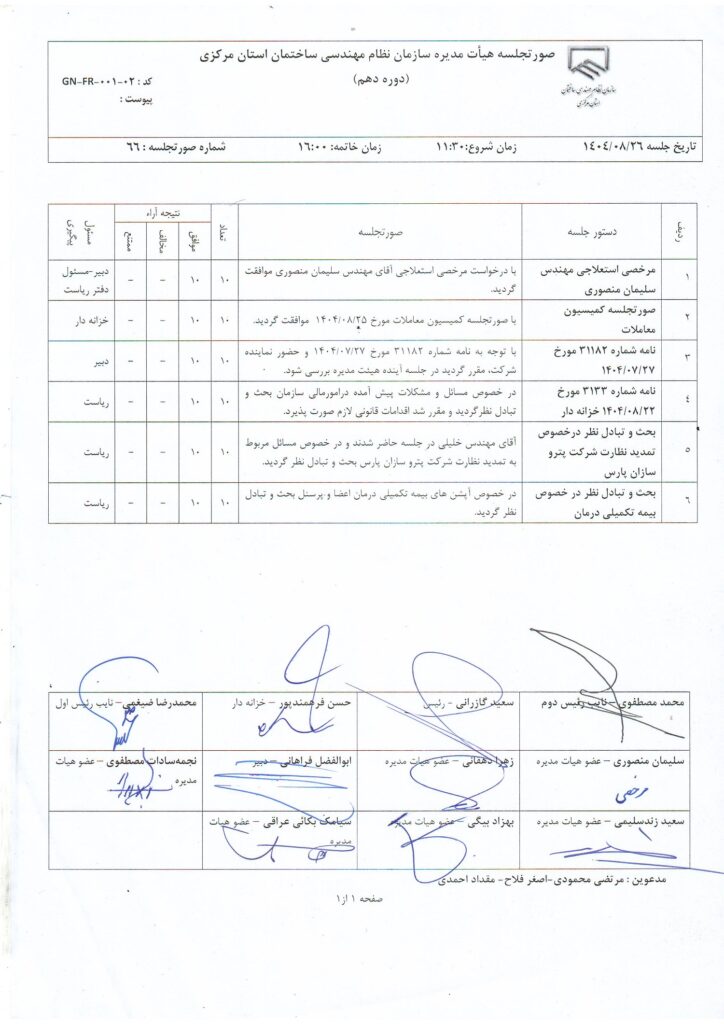 صورتجلسه هیأت مدیره سازمان نظام مهندسی ساختمان استان مرکزی
(دوره دهم)
کد : GN-FR-۰۰۱-۰۲
پیوست :
سازمان نظام مهندسی ساختمان
استان مرکزی
تاریخ جلسه ۱۴۰۴/۰۸/۲۶ زمان شروع:۱۱:۳۰ زمان خاتمه: ۱۶:۰۰ شماره صورتجلسه : ۶۶
ردیف دستور جلسه صورتجلسه تعداد نتیجه آراء مسئول پیگیری
موافق مخالف ممتنع
۱ مرخصی استعلاجی مهندس با درخواست مرخصی استعلاجی آقای مهندس سلیمان منصوری موافقت ۱۰ ۱۰ – – دبیر-مسئول
سلیمان منصوری گردید. دفتر ریاست
۲ صورتجلسه کمیسیون با صورتجلسه کمیسیون معاملات مورخ ۱۴۰۴/۰۸/۲۵ موافقت گردید. ۱۰ ۱۰ – – خزانه دار
معاملات
۳ نامه شماره ۳۱۱۸۲ مورخ با توجه به نامه شماره ۳۱۱۸۲ مورخ ۱۴۰۴/۰۷/۲۷ و حضور نماینده ۱۰ ۱۰ – – دبیر
۱۴۰۴/۰۷/۲۷ شرکت، مقرر گردید در جلسه آینده هیئت مدیره بررسی شود.
۴ نامه شماره ۳۱۳۳ مورخ در خصوص مسائل و مشکلات پیش آمده درامورمالی سازمان بحث و ۱۰ ۱۰ – – ریاست
۱۴۰۴/۰۸/۲۲ خزانه دار تبادل نظرگردید و مقرر شد اقدامات قانونی لازم صورت پذیرد.
۵ بحث و تبادل نظر درخصوص آقای مهندس خلیلی در جلسه حاضر شدند و در خصوص مسائل مربوط ۱۰ ۱۰ – – ریاست
تمدید نظارت شرکت پترو به تمدید نظارت شرکت پترو سازان پارس بحث و تبادل نظر گردید.
سازان پارس
۶ بحث و تبادل نظر در خصوص در خصوص آپشن های بیمه تکمیلی درمان اعضا و پرسنل بحث و تبادل ۱۰ ۱۰ – – ریاست
بیمه تکمیلی درمان نظر گردید.
محمد مصطفوی – نایب رئیس دوم سعید گازرانی - رئیس حسن فرهمندپور – خزانه دار محمدرضا ضیغمی – نایب رئیس اول
سلیمان منصوری – عضو هیات مدیره زهرا دهقانی – عضو هیات مدیره ابوالفضل فراهانی – دبیر نجمه‌سادات مصطفوی – عضو هیات
مدیره
مرخصی
سعید زندسلیمی – عضو هیات مدیره بهزاد بیگی – عضو هیات مدیره سیامک بکائی عراقی – عضو هیات
مدیره
مدعوین : مرتضی محمودی-اصغر فلاح- مقداد احمدی
صفحه ۱ از۱